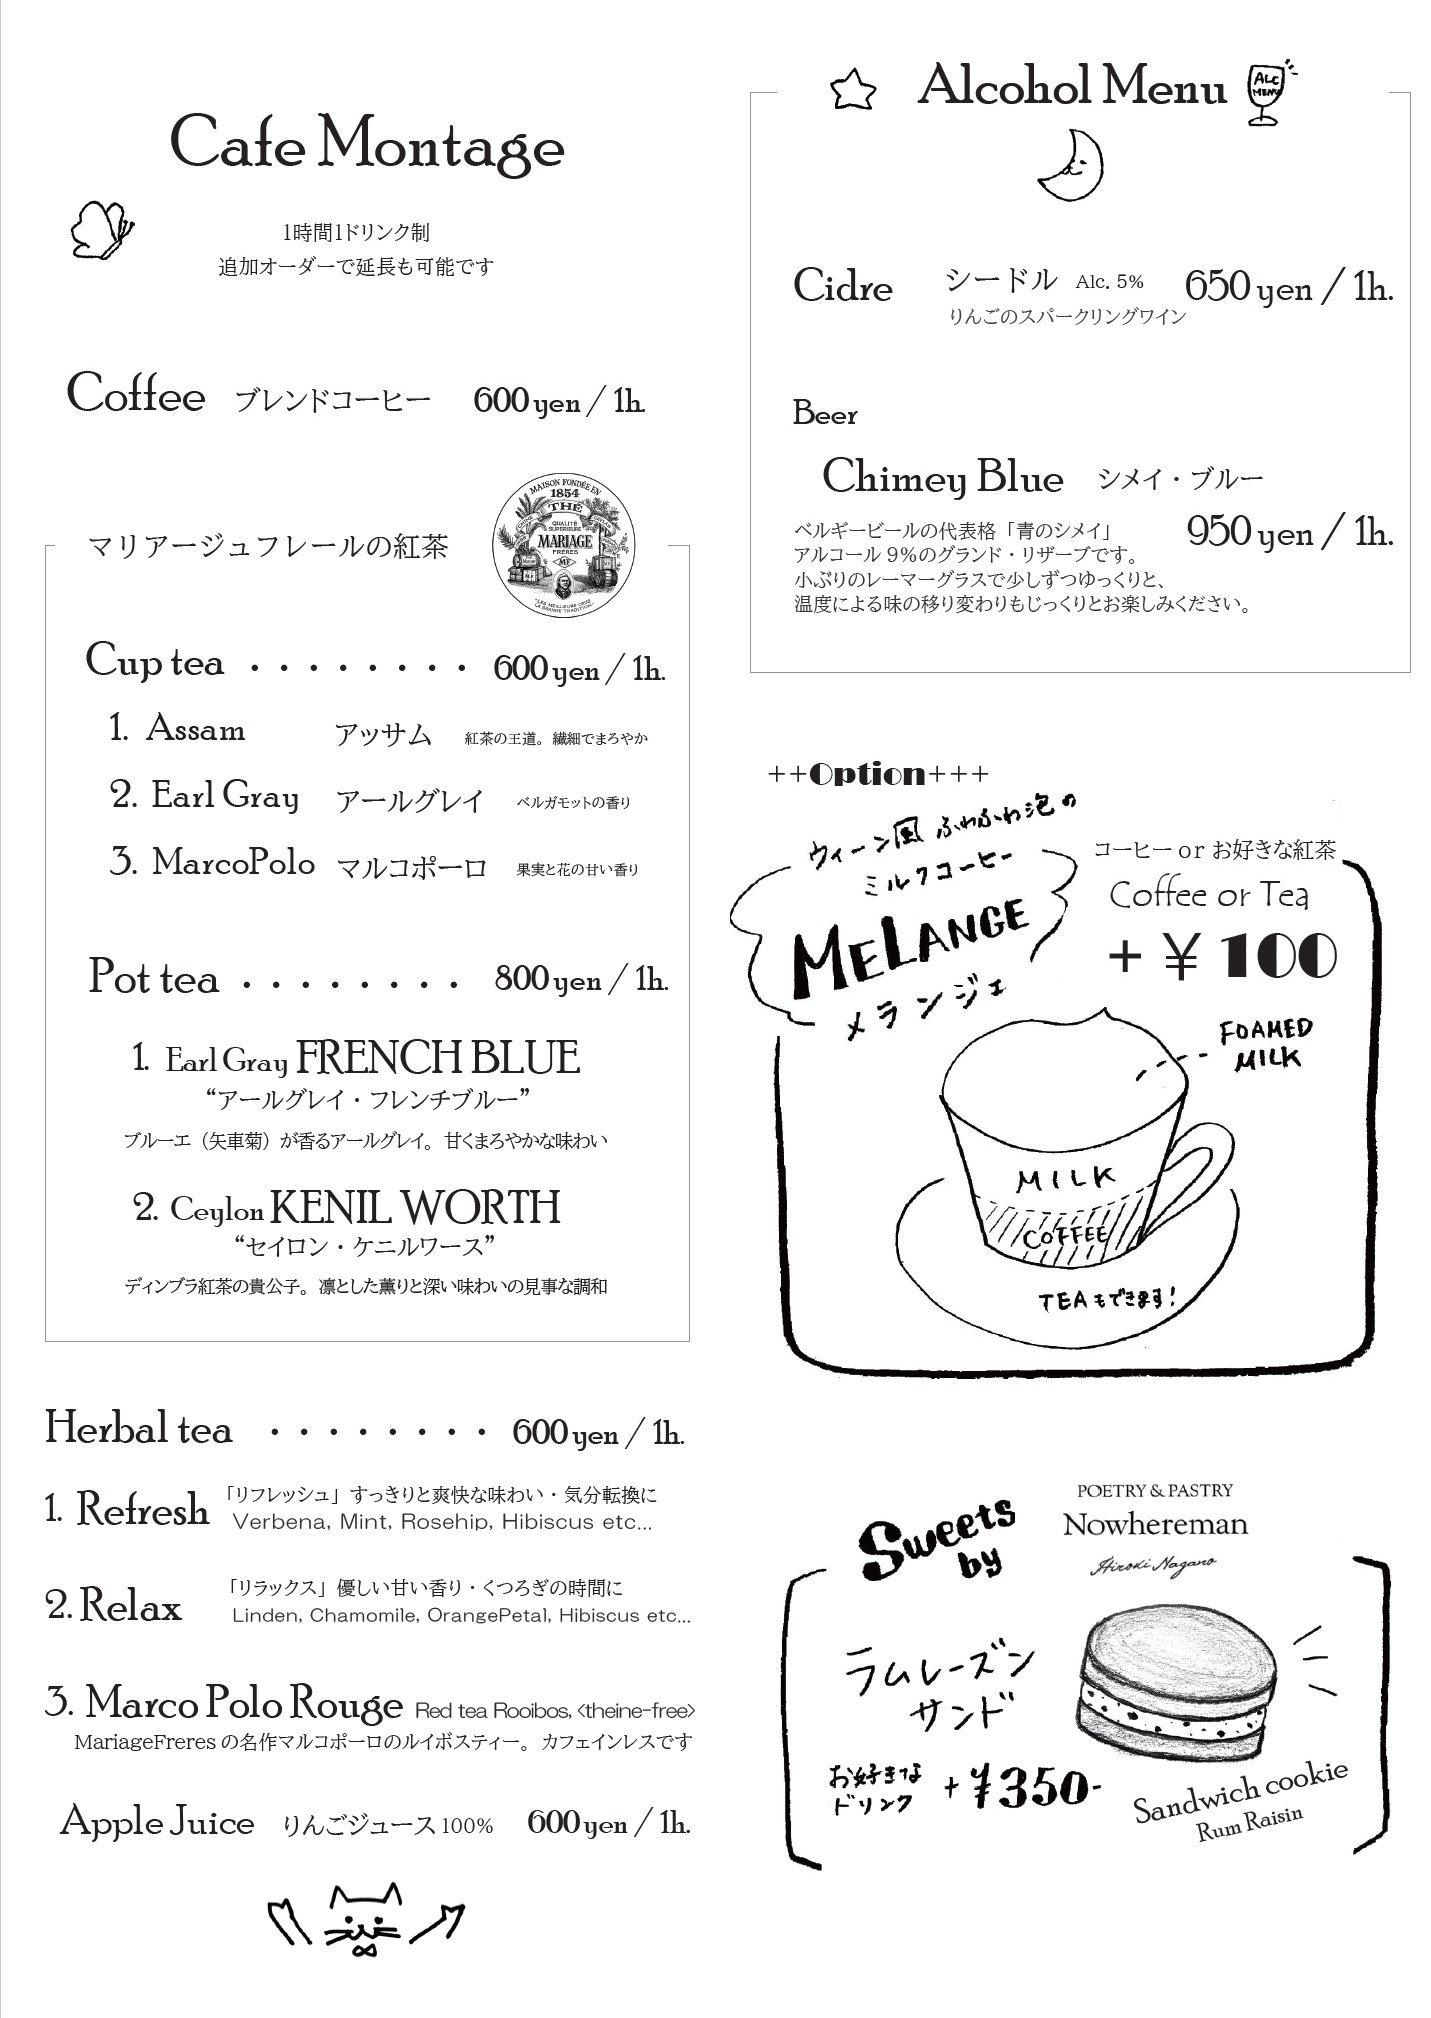 Cafe Montage
1時間1ドリンク制
追加オーダーで延長も可能です
Coffee ブレンドコーヒー 600 yen / 1h.
マリアージュフレールの紅茶
MAISON FONDÉE EN
1854
THÉ
QUALITÉ
SUPÉRIEURE
MARIAGE
FRÈRES
MF
"LES MEILLEURS CRUS
LA GRANDE TRADITION"
Cup tea ・・・・・・・・ 600 yen / 1h.
1. Assam アッサム 紅茶の王道。繊細でまろやか
2. Earl Gray アールグレイ ベルガモットの香り
3. MarcoPolo マルコポーロ 果実と花の甘い香り
Pot tea ・・・・・・・・ 800 yen / 1h.
1. Earl Gray FRENCH BLUE
“アールグレイ・フレンチブルー”
ブルーエ（矢車菊）が香るアールグレイ。甘くまろやかな味わい
2. Ceylon KENIL WORTH
“セイロン・ケニルワース”
ディンブラ紅茶の貴公子。凛とした薫りと深い味わいの見事な調和
Herbal tea ・・・・・・・・ 600 yen / 1h.
1. Refresh 「リフレッシュ」すっきりと爽快な味わい・気分転換に
Verbena, Mint, Rosehip, Hibiscus etc...
2. Relax 「リラックス」優しい甘い香り・くつろぎの時間に
Linden, Chamomile, OrangePetal, Hibiscus etc...
3. Marco Polo Rouge Red tea Rooibos, <theine-free>
MariageFreres の名作マルコポーロのルイボスティー。カフェインレスです
Apple Juice りんごジュース 100% 600 yen / 1h.
Alcohol Menu
ALC
MENU
Cidre シードル Alc. 5% 650 yen / 1h.
りんごのスパークリングワイン
Beer
Chimey Blue シメイ・ブルー
950 yen / 1h.
ベルギービールの代表格「青のシメイ」
アルコール 9%のグランド・リザーブです。
小ぶりのレーマーグラスで少しずつゆっくりと、
温度による味の移り変わりもじっくりとお楽しみください。
++Option+++
ウィーン風 ふわふわ泡の
ミルクコーヒー
MELANGE
メランジェ
コーヒー or お好きな紅茶
Coffee or Tea
+ ¥ 100
FOAMED
MILK
MILK
COFFEE
TEAもできます!
Sweets
by
POETRY & PASTRY
Nowhereman
Hiroki Nagano
ラムレーズン
サンド
お好きな
ドリンク
+ ¥350-
Sandwich cookie
Rum Raisin